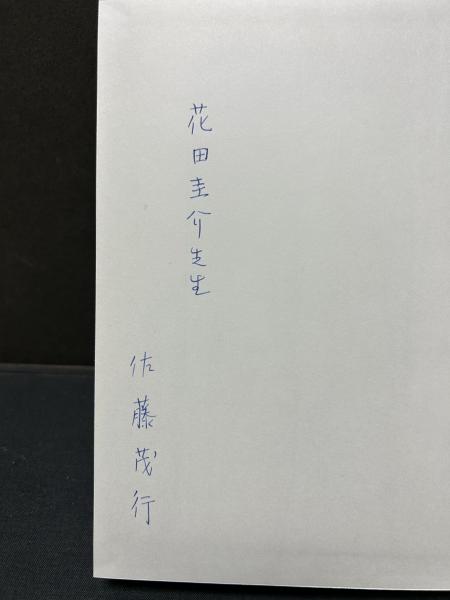 花田圭介先生
佐藤茂行